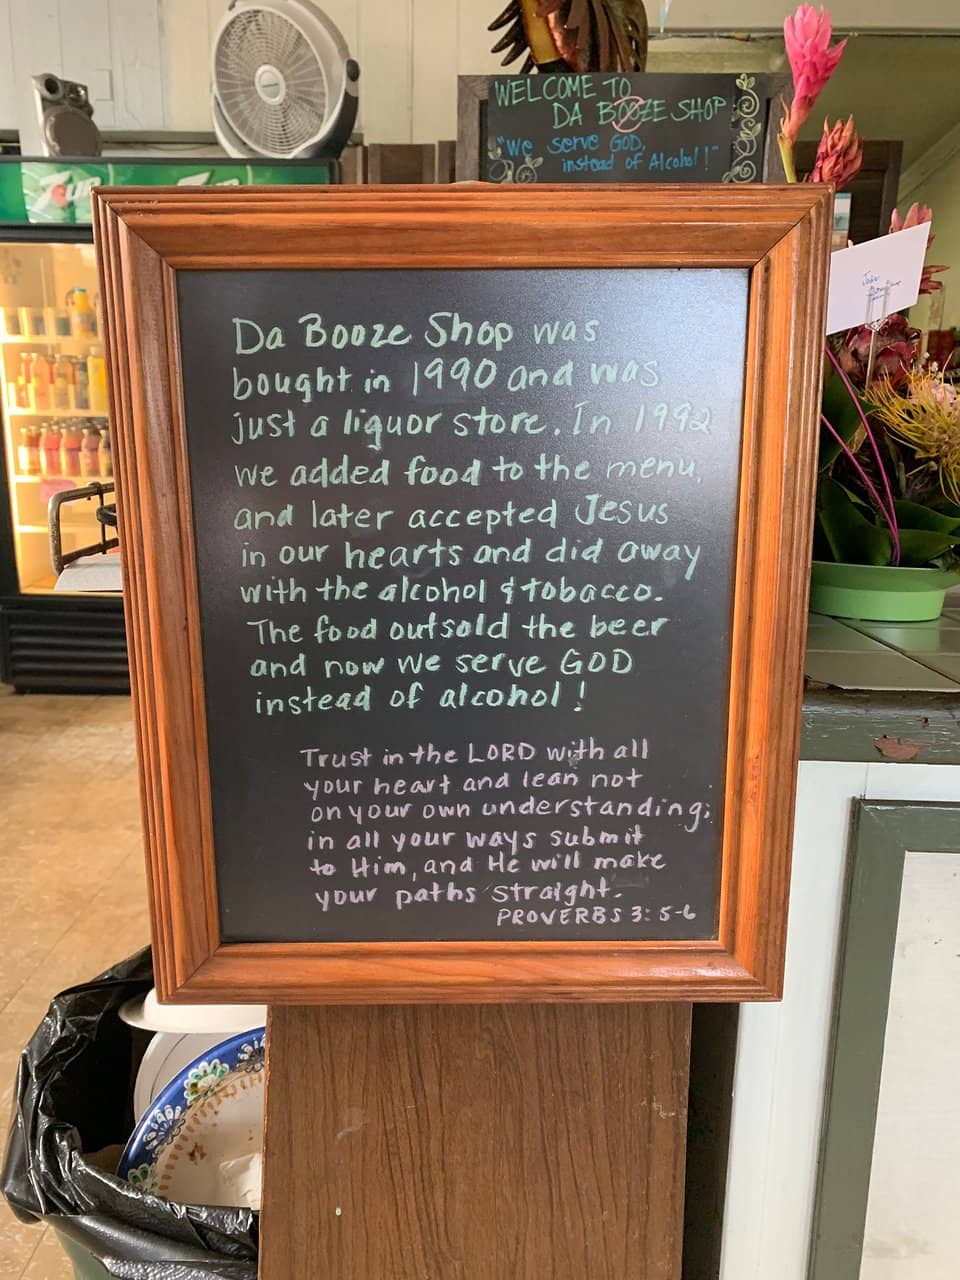 WELCOME TO
DA BOOZE SHOP
"We serve GOD,
instead of Alcohol!"
7up
Da Booze Shop was
bought in 1990 and was
just a liquor store. In 1992
we added food to the menu,
and later accepted Jesus
in our hearts and did away
with the alcohol & tobacco.
The food outsold the beer
and now we serve GOD
instead of alcohol!
Trust in the LORD with all
your heart and lean not
on your own understanding;
in all your ways submit
to Him, and He will make
your paths straight.
PROVERBS 3:5-6